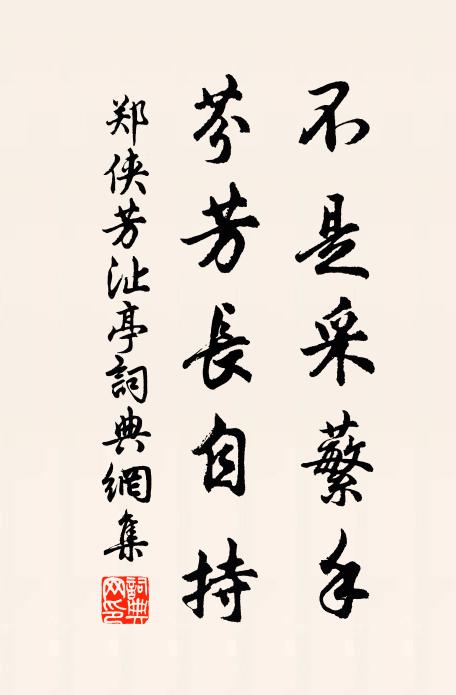 不是采蘩手
芬芳長自持
郑侠芳沚亭詞典網集
詞典網印